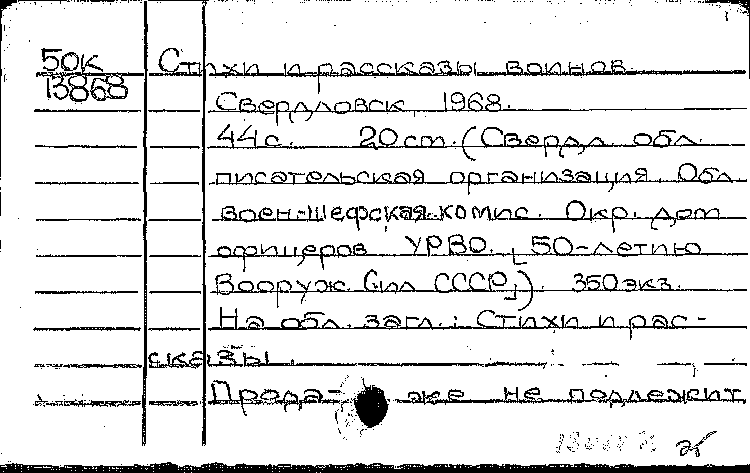 50к Стихи и рассказы воинов.
13868
Свердловск, 1968.
44 с. 20 см. (Свердл. обл.
писательская организация. Обл.
воен.-шефская комис. Окр. дом
офицеров УРВО. [50-летию
Вооруж. Сил СССР]). 350 экз.
На обл. загл.: Стихи и рас-
сказы.
Прода- же не подлежит.